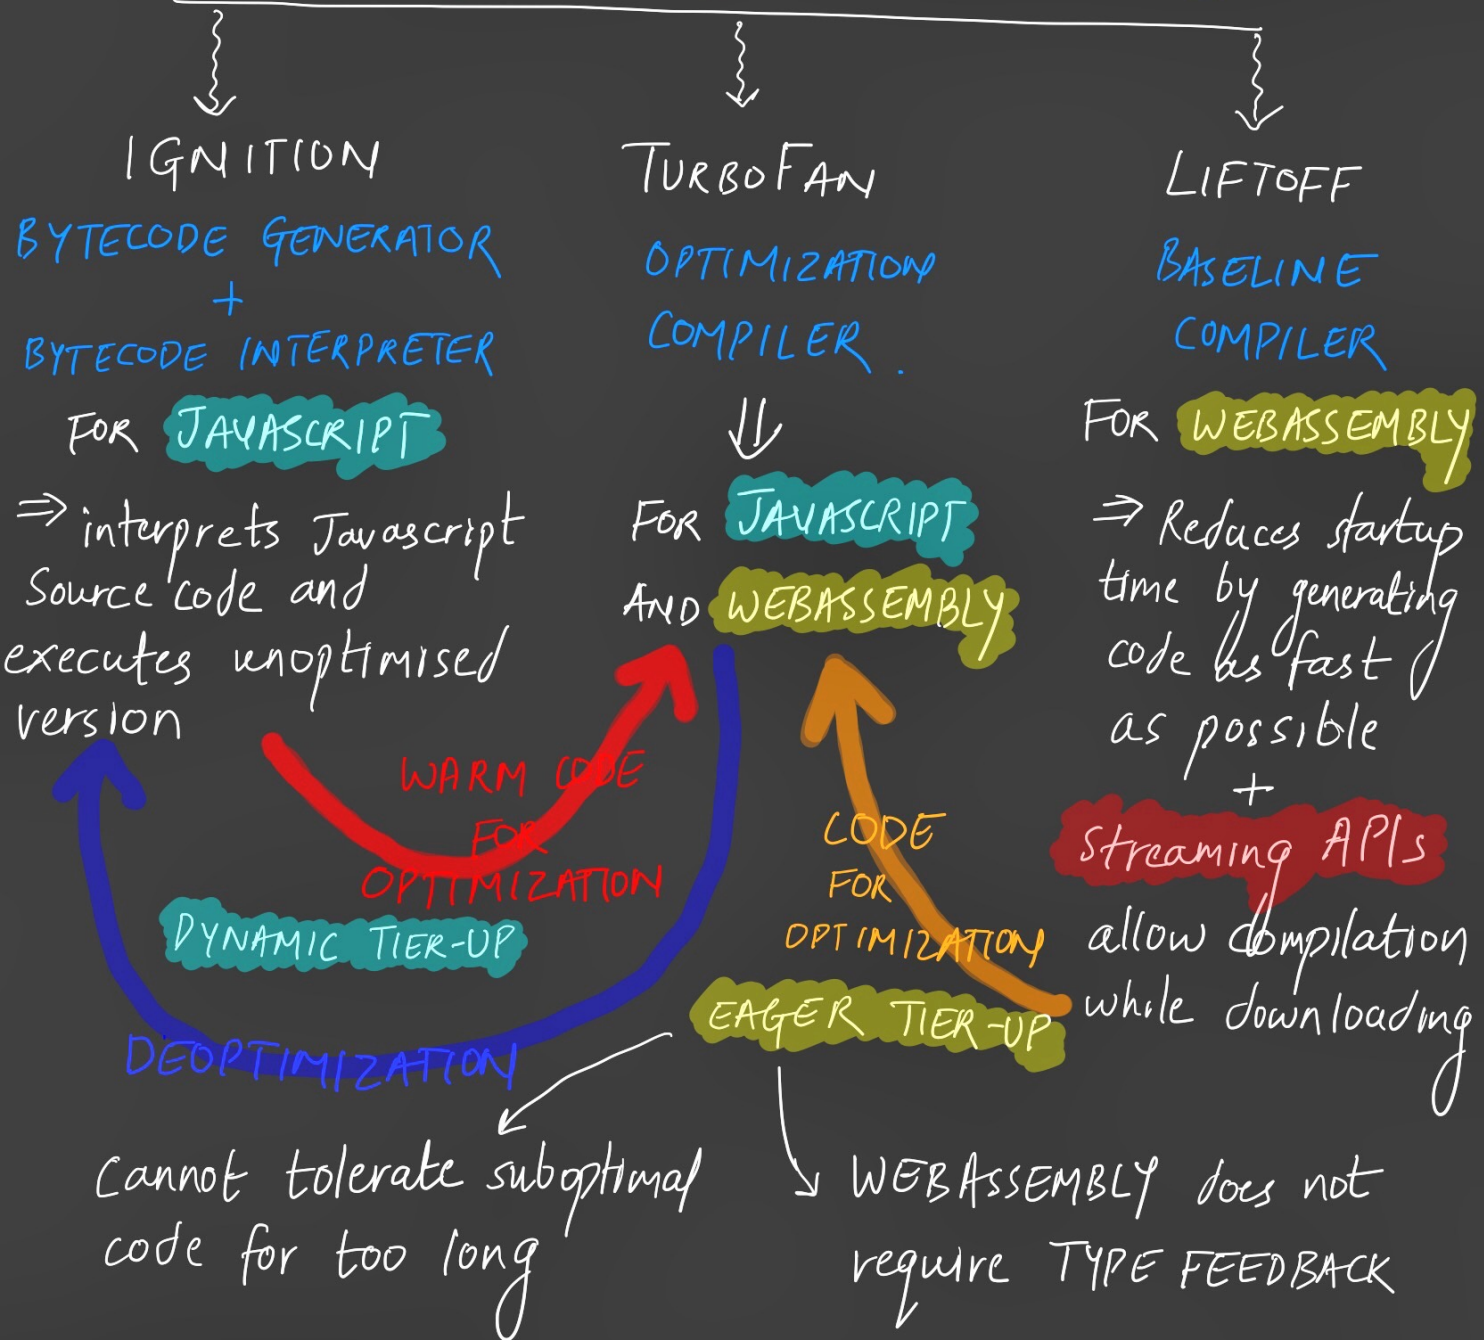 IGNITION
BYTECODE GENERATOR
+
BYTECODE INTERPRETER
FOR JAVASCRIPT
⇒ interprets Javascript
Source code and
executes unoptimised
version
TURBOFAN
OPTIMIZATION
COMPILER.
FOR JAVASCRIPT
AND WEBASSEMBLY
LIFTOFF
BASELINE
COMPILER
FOR WEBASSEMBLY
⇒ Reduces startup
time by generating
code as fast
as possible
+
Streaming APIs
allow compilation
while downloading
WARM CODE
FOR
OPTIMIZATION
DYNAMIC TIER-UP
DEOPTIMIZATION
CODE
FOR
OPTIMIZATION
EAGER TIER-UP
Cannot tolerate suboptimal
code for too long
WEBASSEMBLY does not
require TYPE FEEDBACK